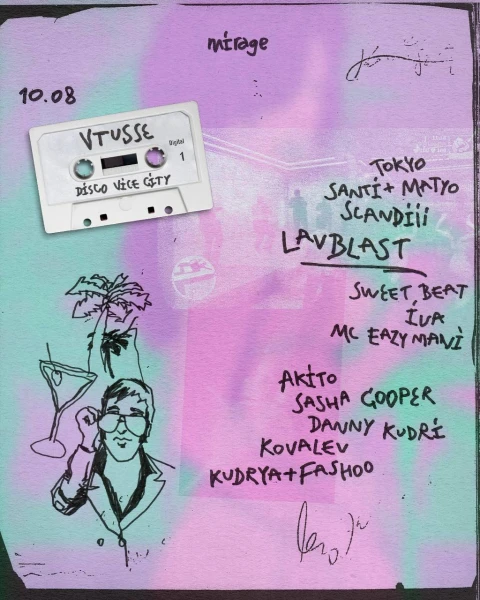 mirage
10.08
VTUSSE
Digital
1
DISCO VICE CITY
TOKYO
SANTI + MATYO
SCANDIII
LAVBLAST
SWEET BEAT
IVA
MC EAZY MANI
AKITO
SASHA COOPER
DANNY KUDRI
KOVALEV
KUDRYA+FASHOO